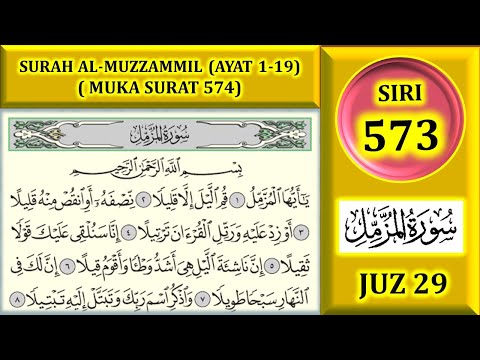 SURAH AL-MUZZAMMIL (AYAT 1-19)
( MUKA SURAT 574)
سُورَةُ المُزَّمِّل
بِسْمِ اللَّهِ الرَّحْمَٰنِ الرَّحِيمِ
يَٰٓأَيُّهَا الْمُزَّمِّلُ ١ قُمِ الَّيْلَ إِلَّا قَلِيلًا ٢ نِّصْفَهُۥٓ أَوِ انقُصْ مِنْهُ قَلِيلًا
٣ أَوْ زِدْ عَلَيْهِ وَرَتِّلِ الْقُرْءَانَ تَرْتِيلًا ٤ إِنَّا سَنُلْقِي عَلَيْكَ قَوْلًا
ثَقِيلًا ٥ إِنَّ نَاشِئَةَ الَّيْلِ هِيَ أَشَدُّ وَطْـًٔا وَأَقْوَمُ قِيلًا ٦ إِنَّ لَكَ فِي
النَّهَارِ سَبْحًا طَوِيلًا ٧ وَاذْكُرِ اسْمَ رَبِّكَ وَتَبَتَّلْ إِلَيْهِ تَبْتِيلًا ٨
SIRI
573
سُورَةُ المُزَّمِّل
JUZ 29